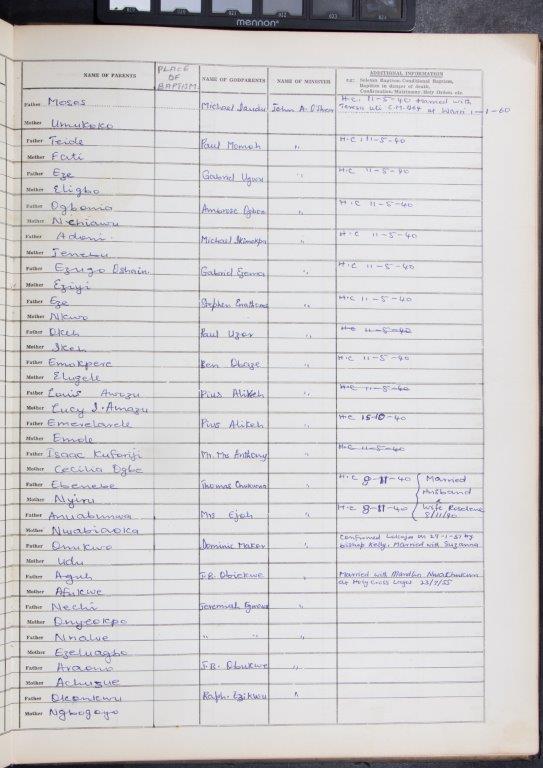 mennon
NAME OF PARENTS
PLACE OF BAPTISM
NAME OF GODPARENTS
NAME OF MINISTER
ADDITIONAL INFORMATION
e.g: Solemn Baptism, Conditional Baptism,
Baptism in danger of death,
Confirmation, Matrimony, Holy Orders, etc.
Father Moses Michael John A. H.C. 11-5-40 Married with
Teresa C.M. at Warri 1-1-60
Mother Umukoko
Father Teide Paul Momoh " H.C 11-5-40
Mother Fati
Father Eze Gabriel Ugwu " H.C 11-5-40
Mother Eligbo
Father Ogbonia Ambrose " H.C 11-5-40
Mother Nchiawu
Father Adoni Michael " H.C 11-5-40
Mother
Father Ezugo Gabriel " H.C 11-5-40
Mother Eziyi
Father Eze Stephen " H.C 11-5-40
Mother Nkwo
Father Okeh Paul Uzor " H.C 11-5-40
Mother Ikeh
Father Emokpere Ben " H.C 11-5-40
Mother Eluzele
Father Louis Pius Alikeh " H.C 11-5-40
Mother Lucy I.
Father Pius Alikeh " H.C 15-10-40
Mother Emole
Father Isaac Mr. Mrs Anthony " H.C 11-5-40
Mother Cecilia Ogbe
Father Ebenebe Thomas " H.C 8-11-40 Married
Husband
Mother Nyiru
Father Mrs Ejoh " H.C 8-11-40 & Wife
8/11/40
Mother
Father Omukwo Dominic " Confirmed on 27-1-57 by
Bishop Kelly. Married with Suzanna
Mother Udu
Father Aguh J.B. Obiekwe " Married with
at Holy Cross Lagos 23/7/55
Mother Afukwe
Father Nechi Jeremiah "
Mother Onyeokpo
Father Nnalue " " "
Mother Ezeluagbo
Father J.B. "
Mother Achuzue
Father Okonkwo Raph. Ezikwu "
Mother Ngbogoyo